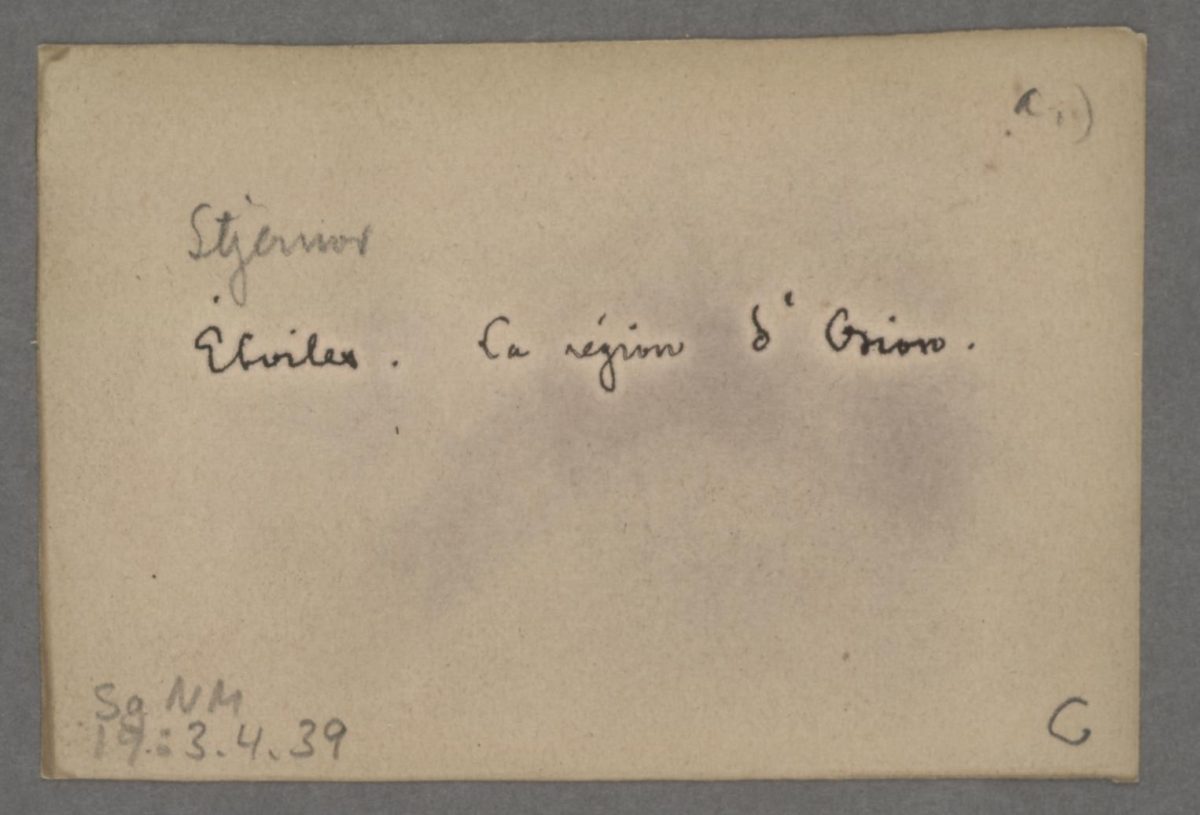 a,)
Stjernor
Étoiles. La région d'Orion.
Sg NM
19:3.4.39
G